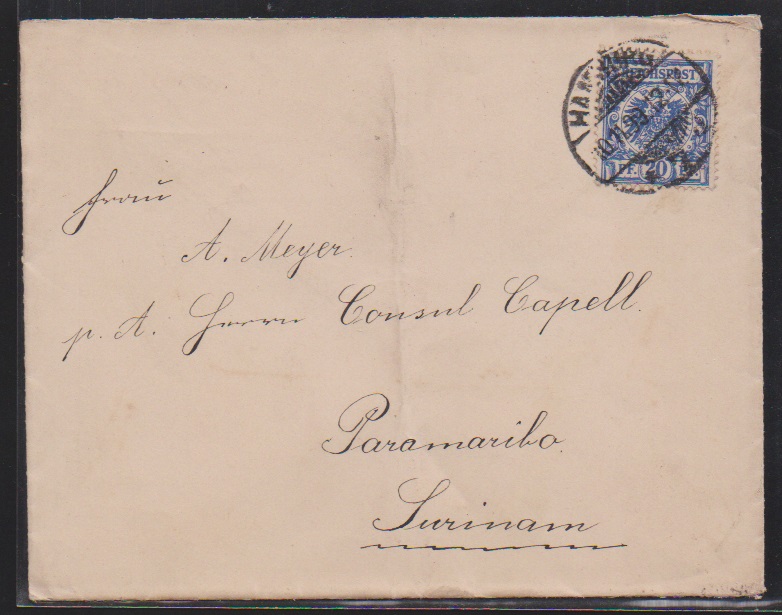 HAMBURG
REICHSPOST
PF. 20 PF.
Frau
A. Meyer.
p. A. Herrn Consul Capell.
Paramaribo.
Surinam